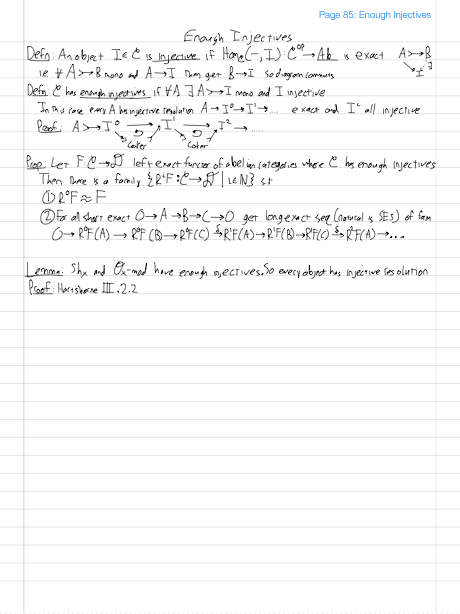 Page 85: Enough Injectives
Enough Injectives
Defn: An object I ∈ C is injective if Home(-, I): C^op → Ab is exact A ↣ B
i.e ∀ A ↣ B mono and A → I Then get B → I so diagram commutes ↘ I ↙ ∃
Defn: C has enough injectives if ∀ A ∃ A ↣ I mono and I injective
In this case every A has injective resolution A → I⁰ → I¹ → .... exact and Iⁱ all injective
Proof: A ↣ I⁰ → I¹ → I² → .....
Coker Coker
Prop: Let F: C → D left exact functor of abelian categories where C has enough injectives
Then there is a family {RⁱF: C → D | i ∈ N} st
① R⁰F ≈ F
② For all short exact 0 → A → B → C → 0 get long exact seq (natural is SES) of form
0 → R⁰F(A) → R⁰F(B) → R⁰F(C) →δ R¹F(A) → R¹F(B) → R¹F(C) →δ R²F(A) → ...
Lemma: Shx and Ox-mod have enough injectives. So every object has injective resolution
Proof: Hartshorne III.2.2